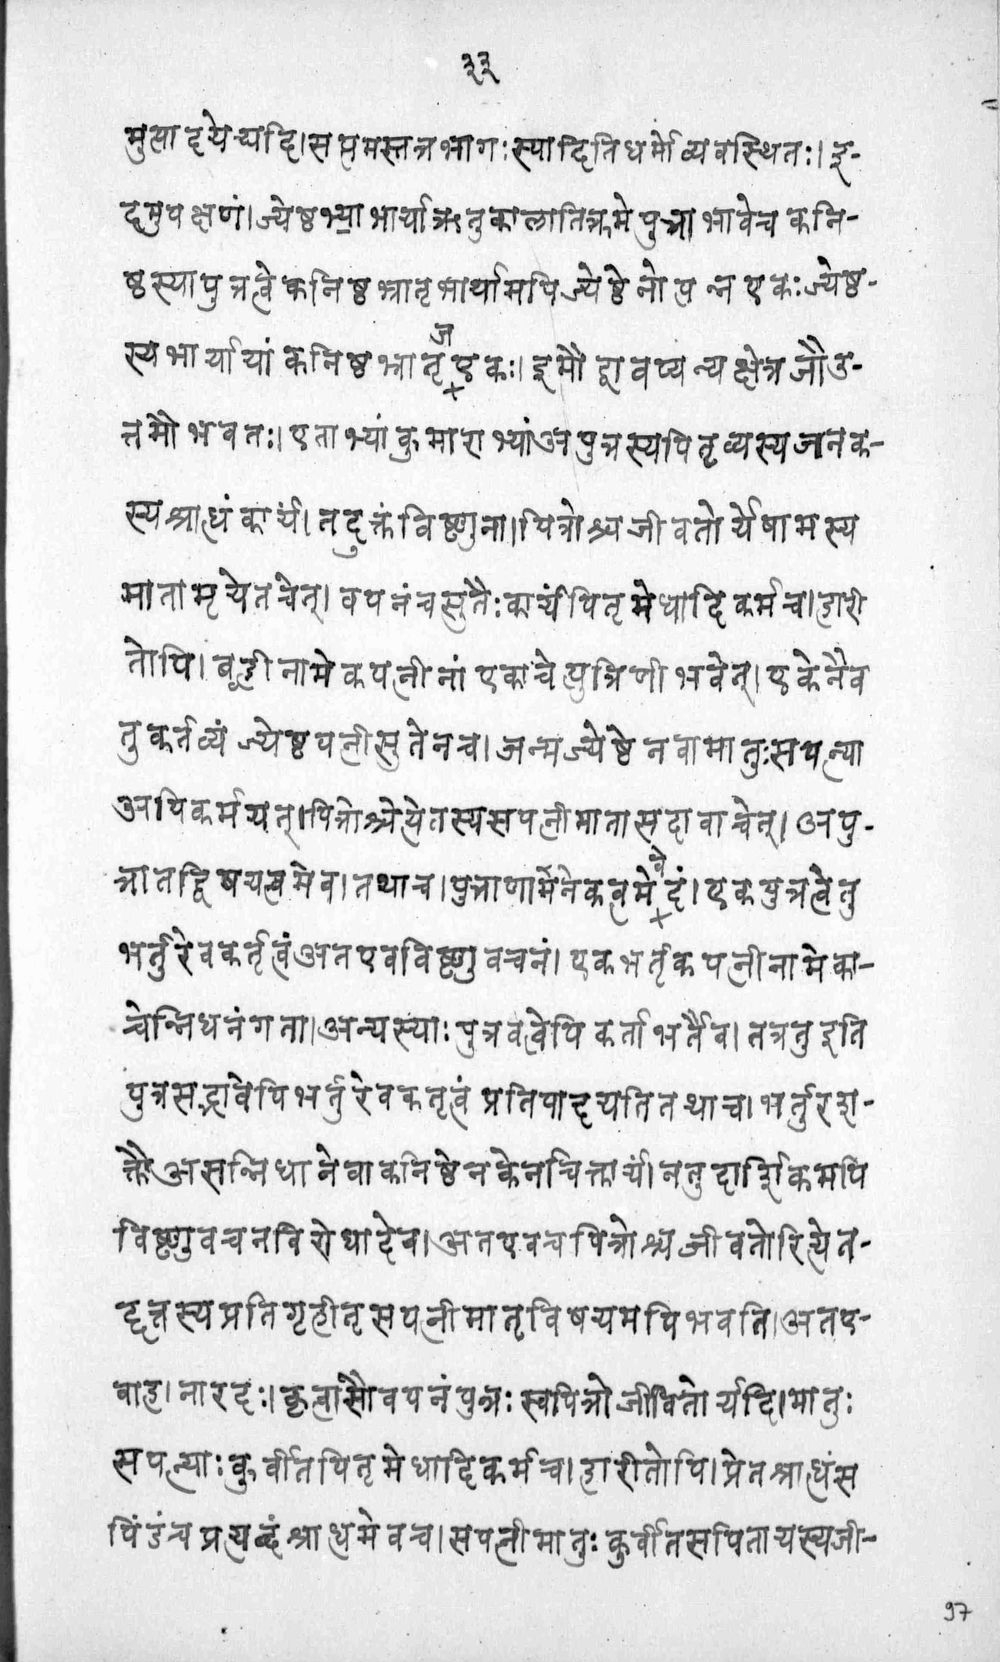 ३३
मुत्पादयेद्यदि। सप्तमस्तत्र भागः स्यादिति धर्मो व्यवस्थितः। इ-
दमुपक्षणं। ज्येष्ठभ्या भार्याऋतुकालातिक्रमे पुत्राभावेच कनि-
ष्ठस्यापुत्रत्वे कनिष्ठभ्रातृभार्यामपि ज्येष्ठेनोत्पन्न एकः ज्येष्ठ-
स्य भार्यायां कनिष्ठभ्रातृज एकः। इमौ द्वावप्यन्यक्षेत्रजौ उ-
त्तमौ भवतः। एताभ्यां कुमाराभ्यां अपुत्रस्य पितृव्यस्य जनक-
स्य श्राधं कार्यं। तदुक्तं विष्णुना। पित्रोश्च जीवतोर्येषामस्य
माता मृयेत चेत्। वपनं च सुतैः कार्यं पितृमेधादि कर्म च। हारी
तोपि। बह्वीनामेकपत्नीनां एका चेत्पुत्रिणी भवेत्। एकेनैव
तु कर्तव्यं ज्येष्ठपत्नीसुतेन च। जन्मज्येष्ठेन वा मातुः सपत्न्या
अपि कर्म यत्। पित्रोश्चेत्येतस्य सपत्नीमाता सदा वा चेत्। अपु-
त्रातद्विषयत्वमेव। तथाच। पुत्राणामनेकत्वमेवेदं। एकपुत्रत्वे तु
भर्तुरेव कर्तृत्वं अतएव विष्णुवचनं। एकभर्तृकपत्नीनामेका-
चेन्निधनं गता। अन्यस्याः पुत्रवत्वेपि कर्ता भर्तैव। तत्र तु इति
पुत्रसद्भावेपि भर्तुरेव कतृत्वं प्रतिपादयति तथाच। भर्तुरश-
क्तौ असन्निधाने वा कनिष्ठेन केनचित्कार्यं। ननु दार्शिकमपि
विष्णुवचनविरोधादेव। अतएव च पित्रोश्च जीवतोरित्येत-
द्दत्तस्य प्रतिगृहीतृसपत्नीमातृविषयमपि भवति। अतए-
वाह। नारदः। कृत्वासौ वपनं पुत्रः स्वपित्रो जीवितोर्यदि। मातुः
सपत्न्याः कुर्वीत पितृमेधादिकर्म च। हारीतोपि। प्रेतश्राधं स
पिंडं च प्रत्यब्दं श्राधमेव च। सपत्नीमातुः कुर्वीत स पिता यस्य जी-
97